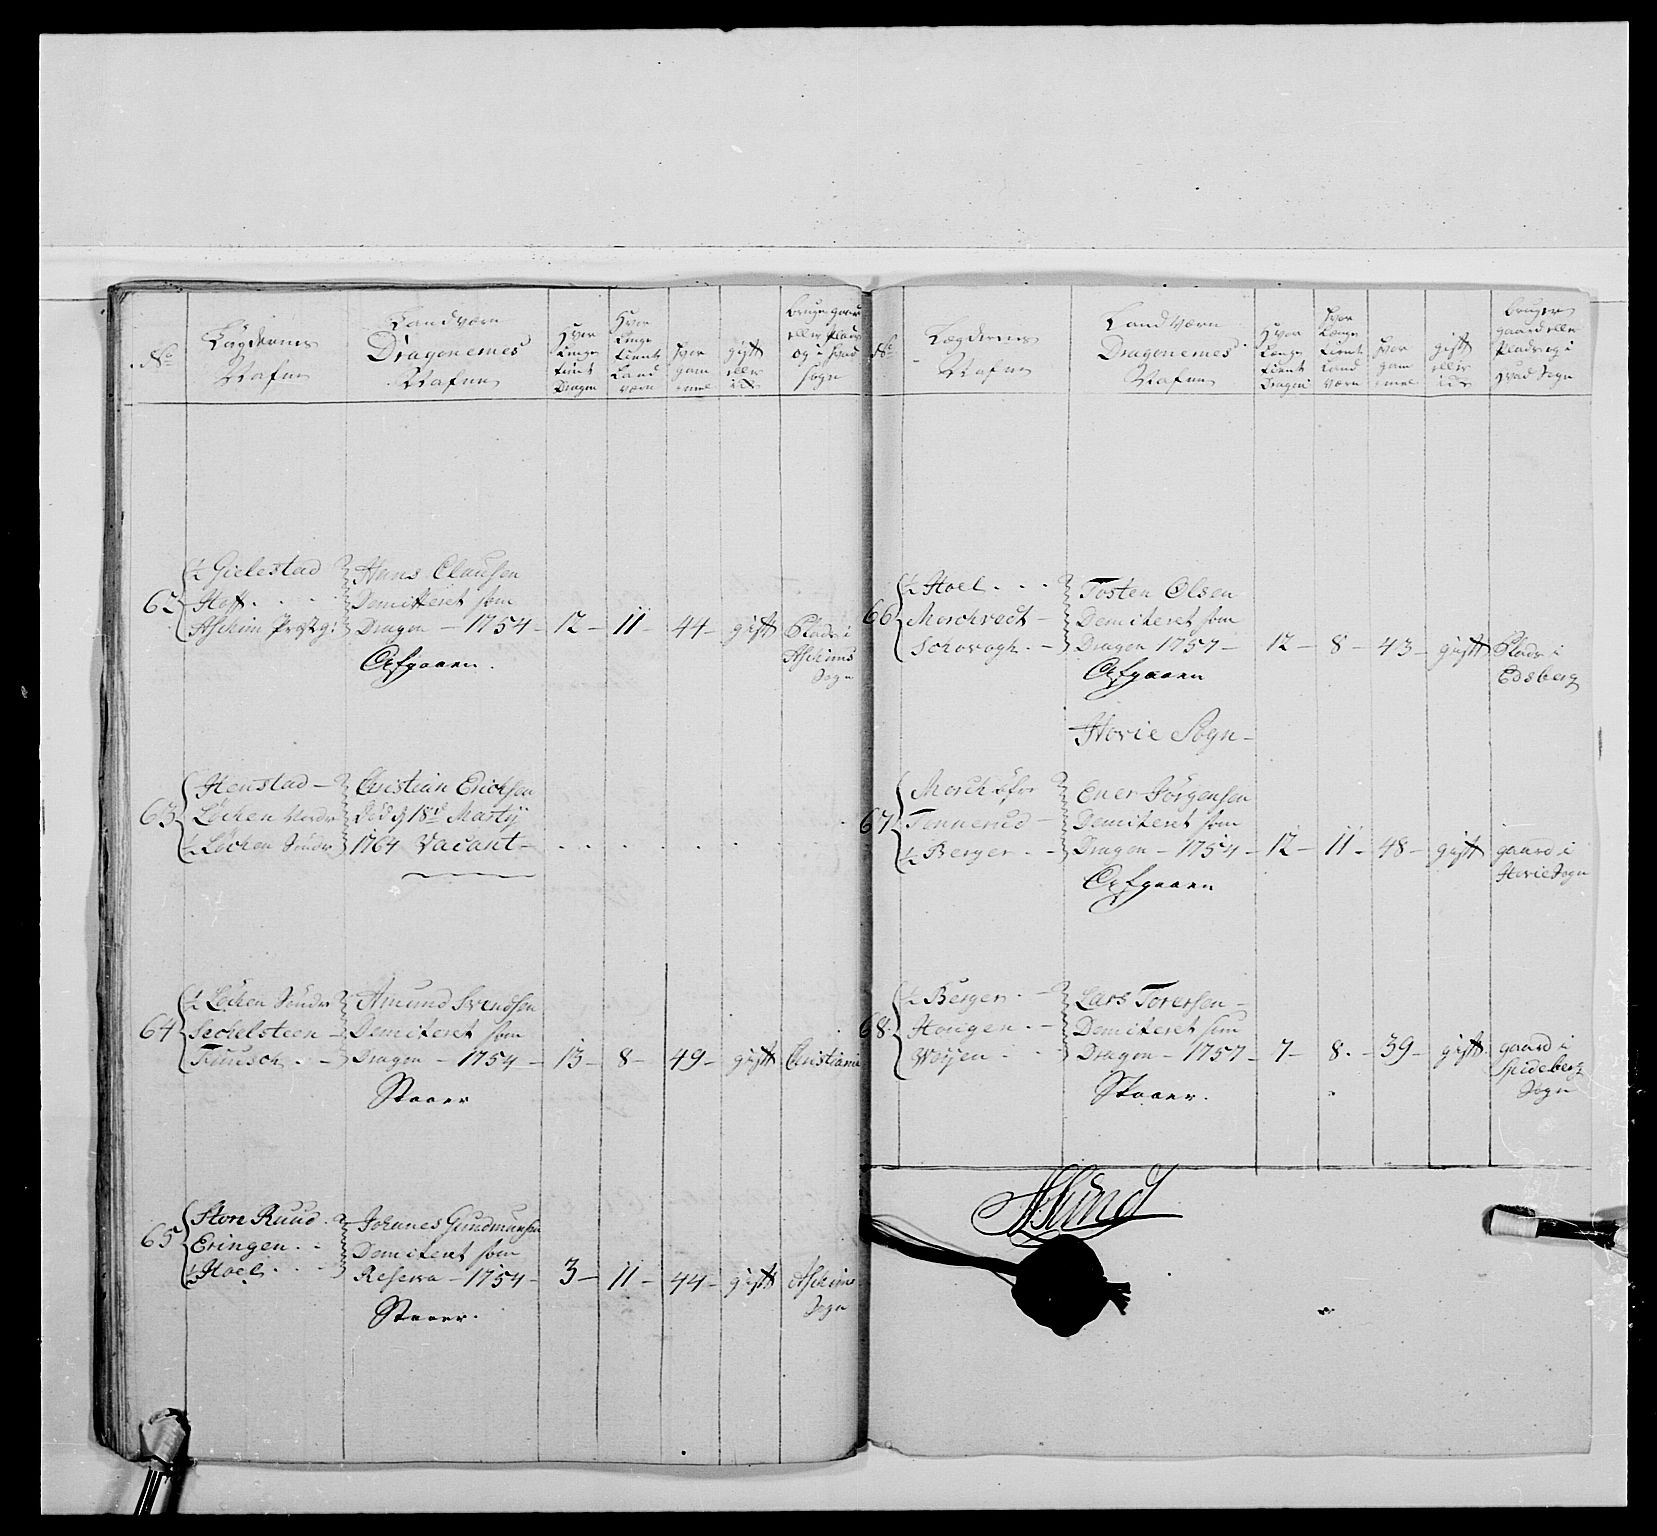 No
Lægdernes
Nafne
Landværn
Dragonernes
Nafne
Hvor
Længe
tient
Dragon
Hvor
Længe
tient
Land
værn
Hvor
gam
mel
gift
eller
ikke
bruger gaard
eller Plads
og i hvad
Sogn
62
½ Gielestad
Hoff
Aschim Præstg:
Hans Clausen
Demitteret som
Dragon - 1754 -
Afgaaen.
12 -
11 -
44 -
gift
Plads i
Aschims
Sogn
63
Henstad -
Løchen Nordr
½ Løchen Søndr
Christian Erichsen
død d 18d Martij
1764 Vacant -
64
½ Løchen Søndr
Sechelsteen -
Finisch
Amund Svendsen
Demiteret som
Dragon - 1754 -
Staaer
13 -
8 -
49 -
gift
Christiania
65
Store Ruud
Eringen
½ Hoel
Johannes Gundmunsen
Demiteret som
Reserva - 1754 -
Staaer.
3 -
11 -
44 -
gift
Aschims
Sogn
No
Lægdernes
Nafne
Landværn
Dragonernes
Nafne
Hvor
Længe
tient
Dragon
Hvor
Længe
tient
Land
værn
Hvor
gam
mel
gift
eller
ikke
bruger
gaard eller
Plads og i
hvad Sogn
66
½ Hoel
Morchvedt -
Schovogh. -
Tosten Olsen
Demiteret som
Dragon 1757 -
Afgaaen
12 -
8 -
43 -
gift
Plads i
Edsberg
Hovie Sogn -
67
Morch øfre
Tennerud -
½ Berger
Ener Jørgensen
Demiteret som
Dragon - 1754 -
Afgaaen
12 -
11 -
48 -
gift
gaard i
Hovie Sogn
68
½ Berger
Hougen
Woyen
Lars Toversen -
Demiteret som
Dragon - 1757 -
Staaer.
7 -
8. -
39 -
gift
gaard i
Spideberg
Sogn